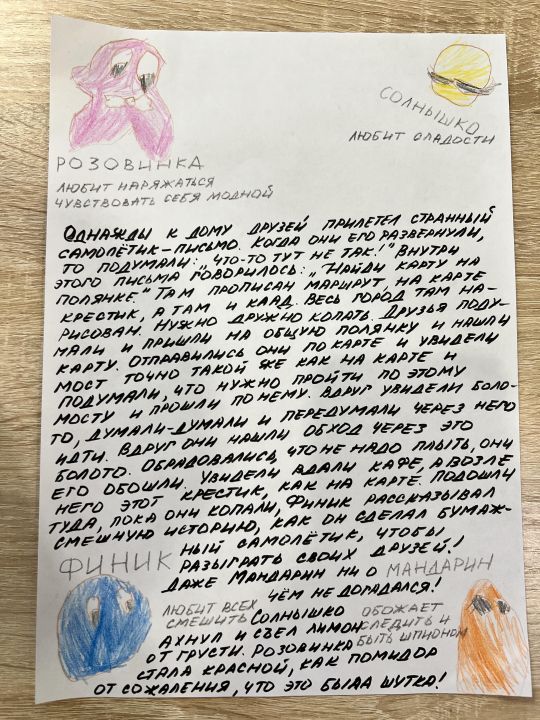 РОЗОВИНКА
ЛЮБИТ НАРЯЖАТЬСЯ
ЧУВСТВОВАТЬ СЕБЯ МОДНОЙ
СОЛНЫШКО
ЛЮБИТ СЛАДОСТИ
ОДНАЖДЫ К ДОМУ ДРУЗЕЙ ПРИЛЕТЕЛ СТРАННЫЙ
САМОЛЁТИК-ПИСЬМО. КОГДА ОНИ ЕГО РАЗВЕРНУЛИ,
ТО ПОДУМАЛИ: „ЧТО-ТО ТУТ НЕ ТАК!" ВНУТРИ
ЭТОГО ПИСЬМА ГОВОРИЛОСЬ: „НАЙДИ КАРТУ НА
ПОЛЯНКЕ." ТАМ ПРОПИСАН МАРШРУТ, НА КАРТЕ
КРЕСТИК, А ТАМ И КЛАД. ВЕСЬ ГОРОД ТАМ НА-
РИСОВАН. НУЖНО ДРУЖНО КОПАТЬ. ДРУЗЬЯ ПОДУ-
МАЛИ И ПРИШЛИ НА ОБЩУЮ ПОЛЯНКУ И НАШЛИ
КАРТУ. ОТПРАВИЛИСЬ ОНИ ПО КАРТЕ И УВИДЕЛИ
МОСТ ТОЧНО ТАКОЙ ЖЕ КАК НА КАРТЕ И
ПОДУМАЛИ, ЧТО НУЖНО ПРОЙТИ ПО ЭТОМУ
МОСТУ И ПРОШЛИ ПО НЕМУ. ВДРУГ УВИДЕЛИ БОЛО-
ТО, ДУМАЛИ-ДУМАЛИ И ПЕРЕДУМАЛИ ЧЕРЕЗ НЕГО
ИДТИ. ВДРУГ ОНИ НАШЛИ ОБХОД ЧЕРЕЗ ЭТО
БОЛОТО. ОБРАДОВАЛИСЬ, ЧТО НЕ НАДО ПЛЫТЬ, ОНИ
ЕГО ОБОШЛИ. УВИДЕЛИ ВДАЛИ КАФЕ, А ВОЗЛЕ
НЕГО ЭТОТ КРЕСТИК, КАК НА КАРТЕ. ПОДОШЛИ
ТУДА, ПОКА ОНИ КОПАЛИ, ФИНИК РАССКАЗЫВАЛ
СМЕШНУЮ ИСТОРИЮ, КАК ОН СДЕЛАЛ БУМАЖ-
НЫЙ САМОЛЁТИК, ЧТОБЫ
РАЗЫГРАТЬ СВОИХ ДРУЗЕЙ!
ДАЖЕ МАНДАРИН НИ О
ЧЁМ НЕ ДОГАДАЛСЯ!
СОЛНЫШКО
АХНУЛ И СЪЕЛ ЛИМОН
ОТ ГРУСТИ. РОЗОВИНКА
СТАЛА КРАСНОЙ, КАК ПОМИДОР
ОТ СОЖАЛЕНИЯ, ЧТО ЭТО БЫЛА ШУТКА!
ФИНИК
ЛЮБИТ ВСЕХ
СМЕШИТЬ
МАНДАРИН
ОБОЖАЕТ
СЛЕДИТЬ И
БЫТЬ ШПИОНОМ